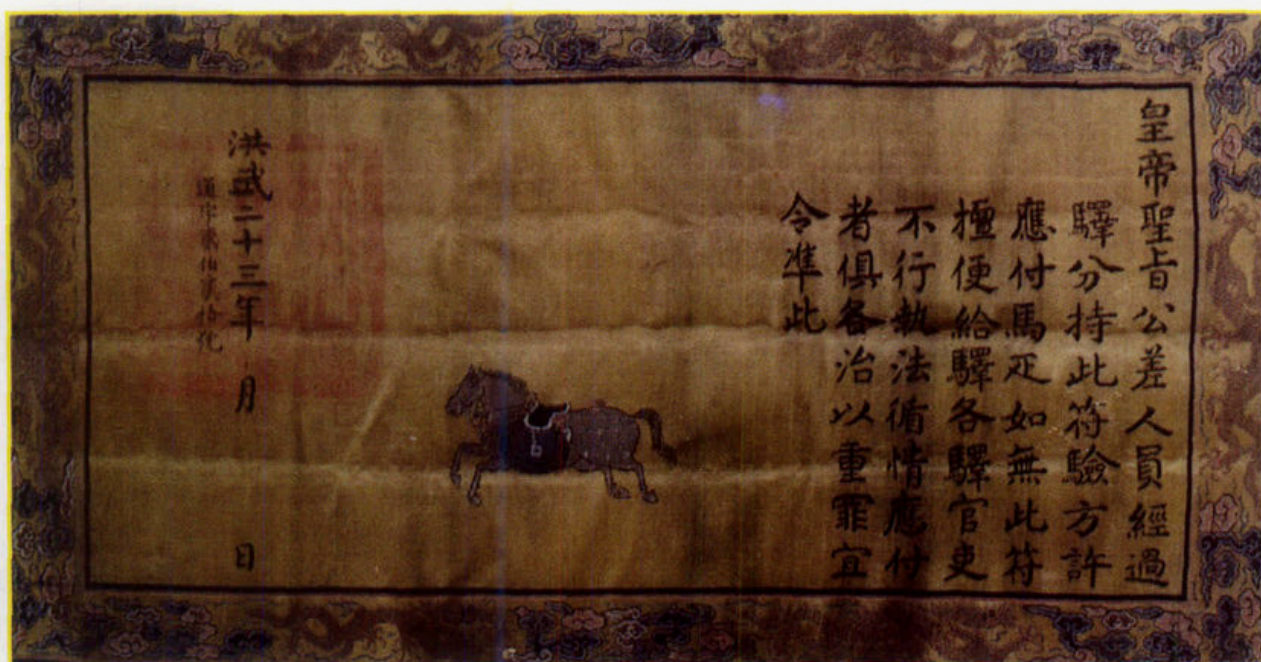 皇帝聖旨公差人員經過
驛分持此符驗方許
應付馬疋如無此符
擅便給驛各驛官吏
不行執法循情應付
者俱各治以重罪宜
令準此
洪武二十三年 月 日
通字貳伯貳拾號